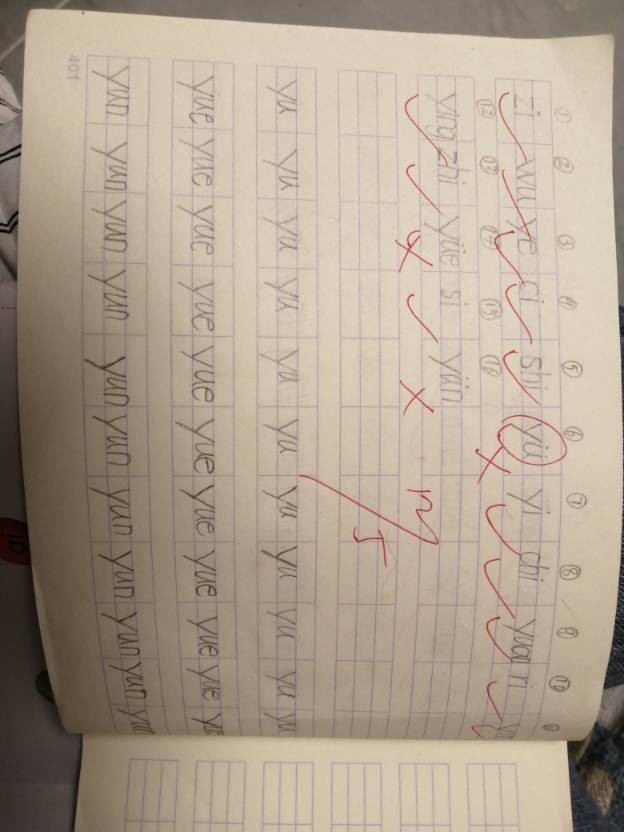 ① ② ③ ④ ⑤ ⑥ ⑦ ⑧ ⑨ ⑩
zi wu ye ci shi yü yi chi yuan ri
⑫ ⑬ ⑭ ⑮ ⑯
ying zhi yüe si yün
yu yu yu yu yu yu yu yu yu yu yu
yue yue yue yue yue yue yue yue yue yue
yun yun yun yun yun yun yun yun yun yun yun
401